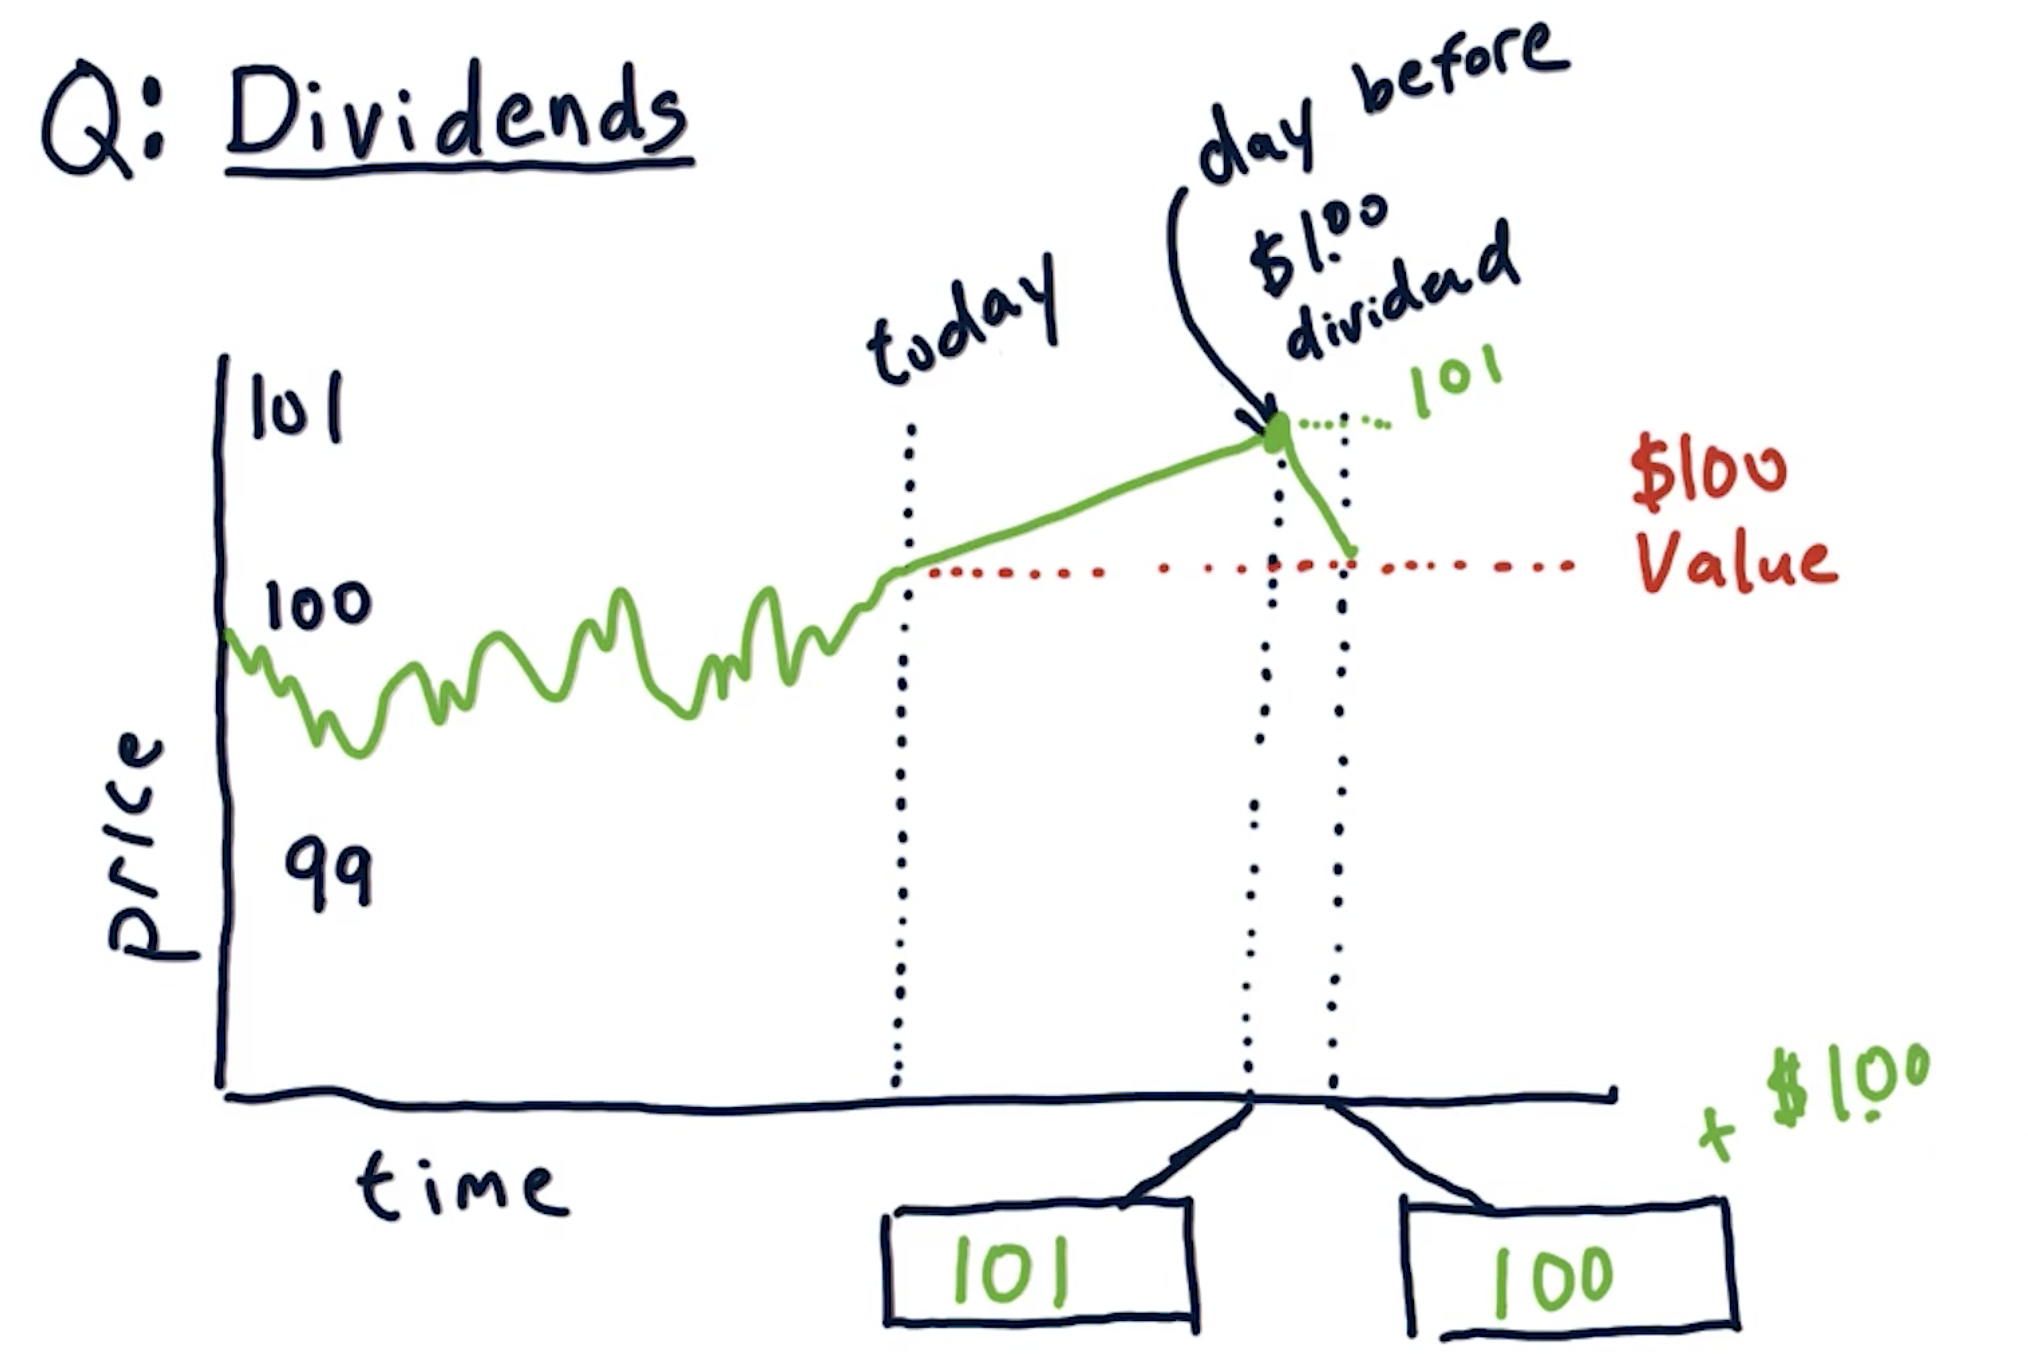 Q: Dividends
day before
$1.00
dividend
today
101
101
$100
Value
100
99
price
time
+ $1.00
101
100